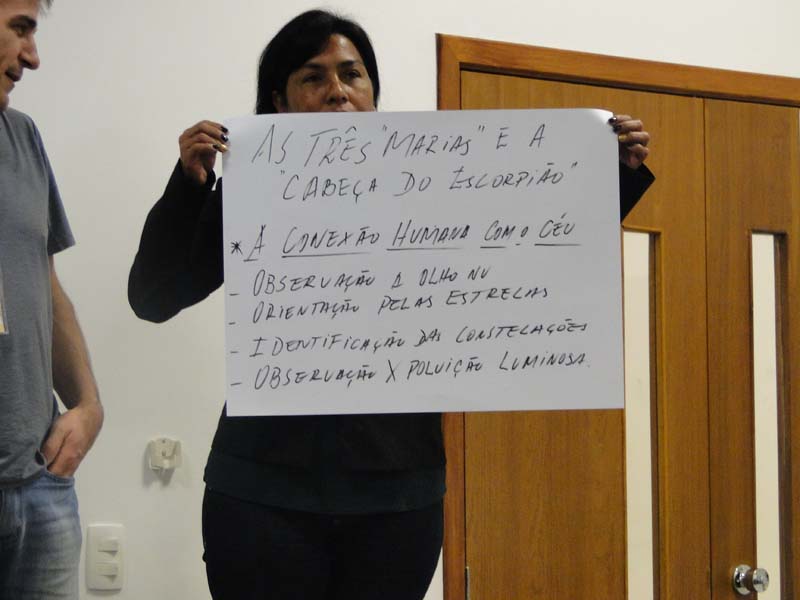 AS TRÊS "MARIAS" E A
"CABEÇA DO ESCORPIÃO"
* A CONEXÃO HUMANA COM O CÉU
- OBSERVAÇÃO A OLHO NU
- ORIENTAÇÃO PELAS ESTRELAS
- IDENTIFICAÇÃO DAS CONSTELAÇÕES
- OBSERVAÇÃO X POLUIÇÃO LUMINOSA.